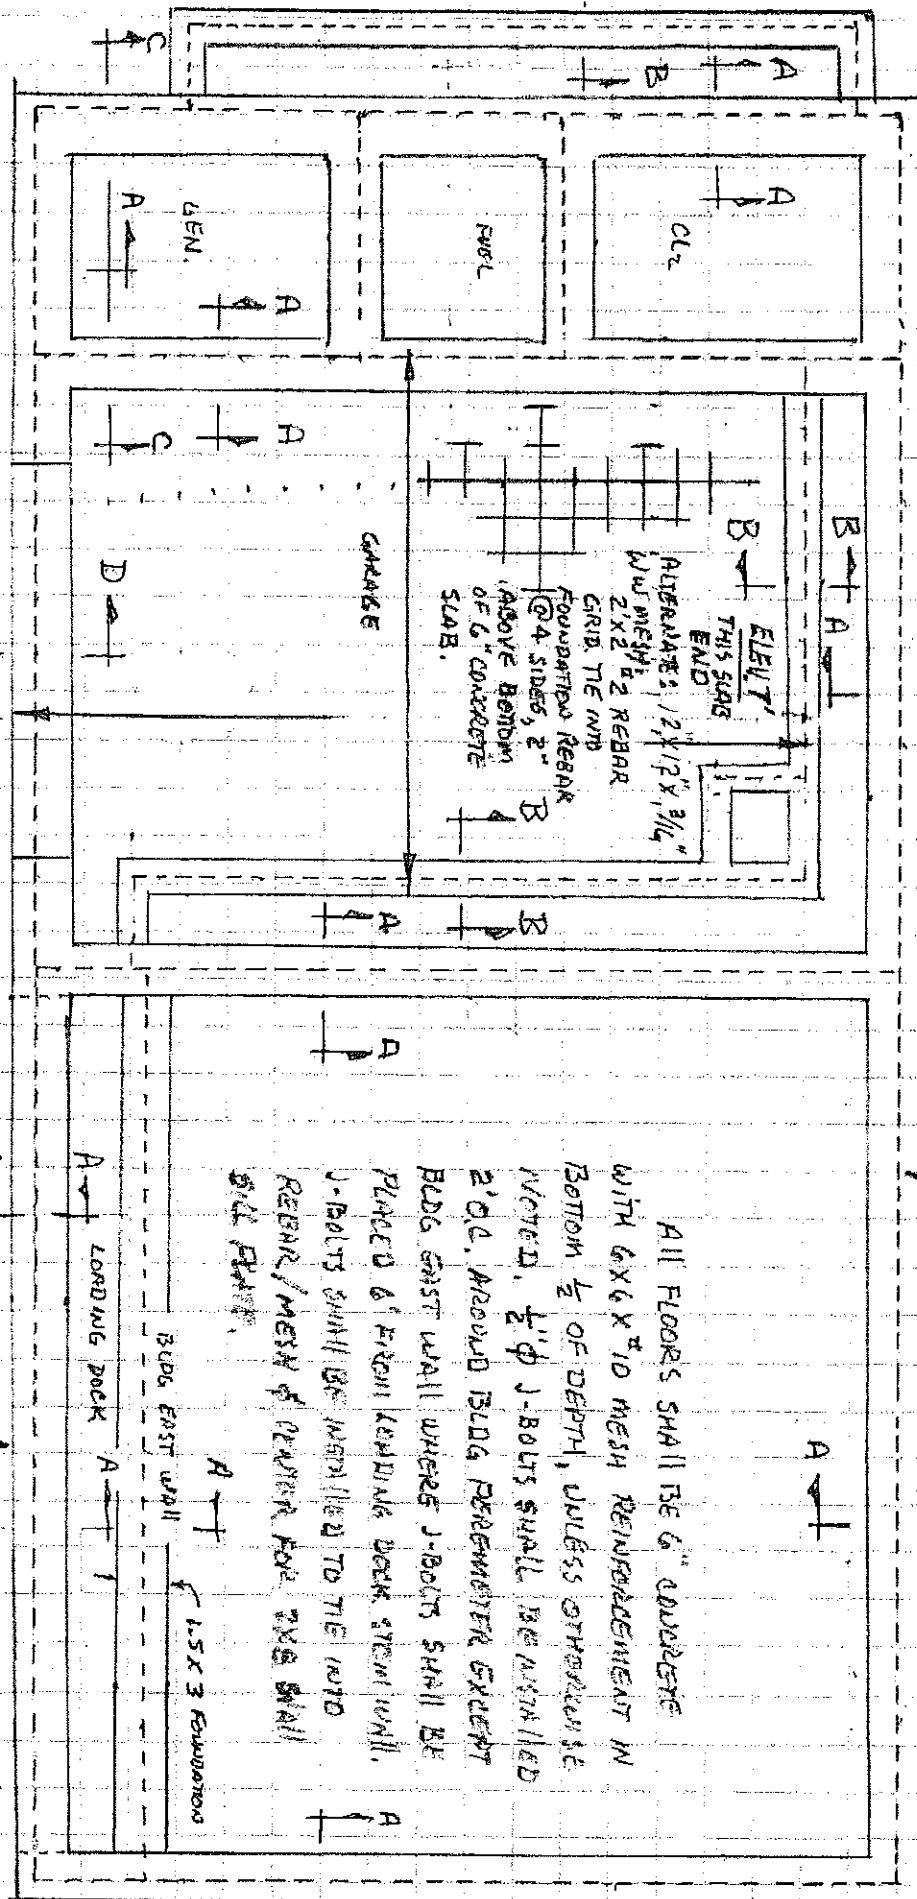 C
B
A
A
GEN.
A
FUEL
CL2
A
C
A
D
GARAGE
B
B
A
ELEV. 7'
THIS SLAB
END
ALTERNATE: 12"X12"X 3/16"
WW MESH;
2'X2' #2 REBAR
GRID. TIE INTO
FOUNDATION REBAR
@ 4 SIDES, 2"
ABOVE BOTTOM
OF 6" CONCRETE
SLAB.
B
A
B
A
ALL FLOORS SHALL BE 6" CONCRETE
WITH 6X6X #10 MESH REINFORCEMENT IN
BOTTOM ½ OF DEPTH, UNLESS OTHERWISE
NOTED. ½"φ J-BOLTS SHALL BE INSTALLED
2' O.C. AROUND BLDG PEREMETER EXCEPT
BLDG EAST WALL WHERE J-BOLTS SHALL BE
PLACED 6' FROM LOADING DOCK STEM WALL.
J-BOLTS SHALL BE INSTALLED TO TIE INTO
REBAR/MESH & CENTER FOR 2X6 WALL
SILL PLATE.
A
A
LOADING DOCK
A
BLDG EAST WALL
A
1.5 X 3 FOUNDATION
A